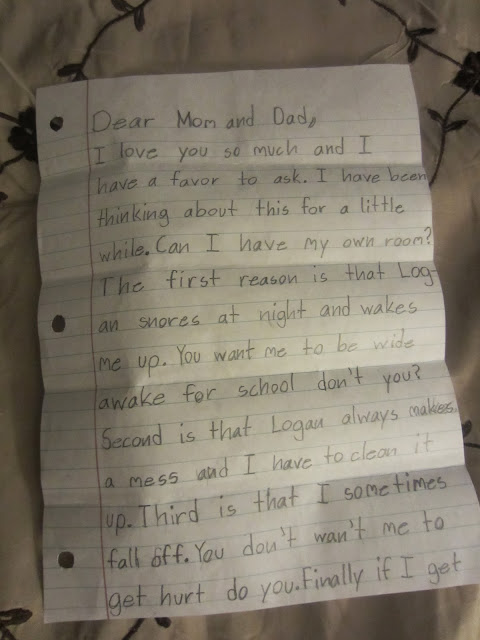 Dear Mom and Dad,
I love you so much and I
have a favor to ask. I have been
thinking about this for a little
while. Can I have my own room?
The first reason is that Log-
an snores at night and wakes
me up. You want me to be wide
awake for school don't you?
Second is that Logan always makes
a mess and I have to clean it
up. Third is that I sometimes
fall off. You don't wan't me to
get hurt do you. Finally if I get